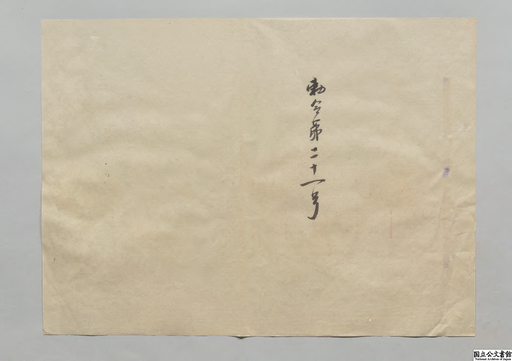 勅令第二十一号
国立公文書館
National Archives of Japan